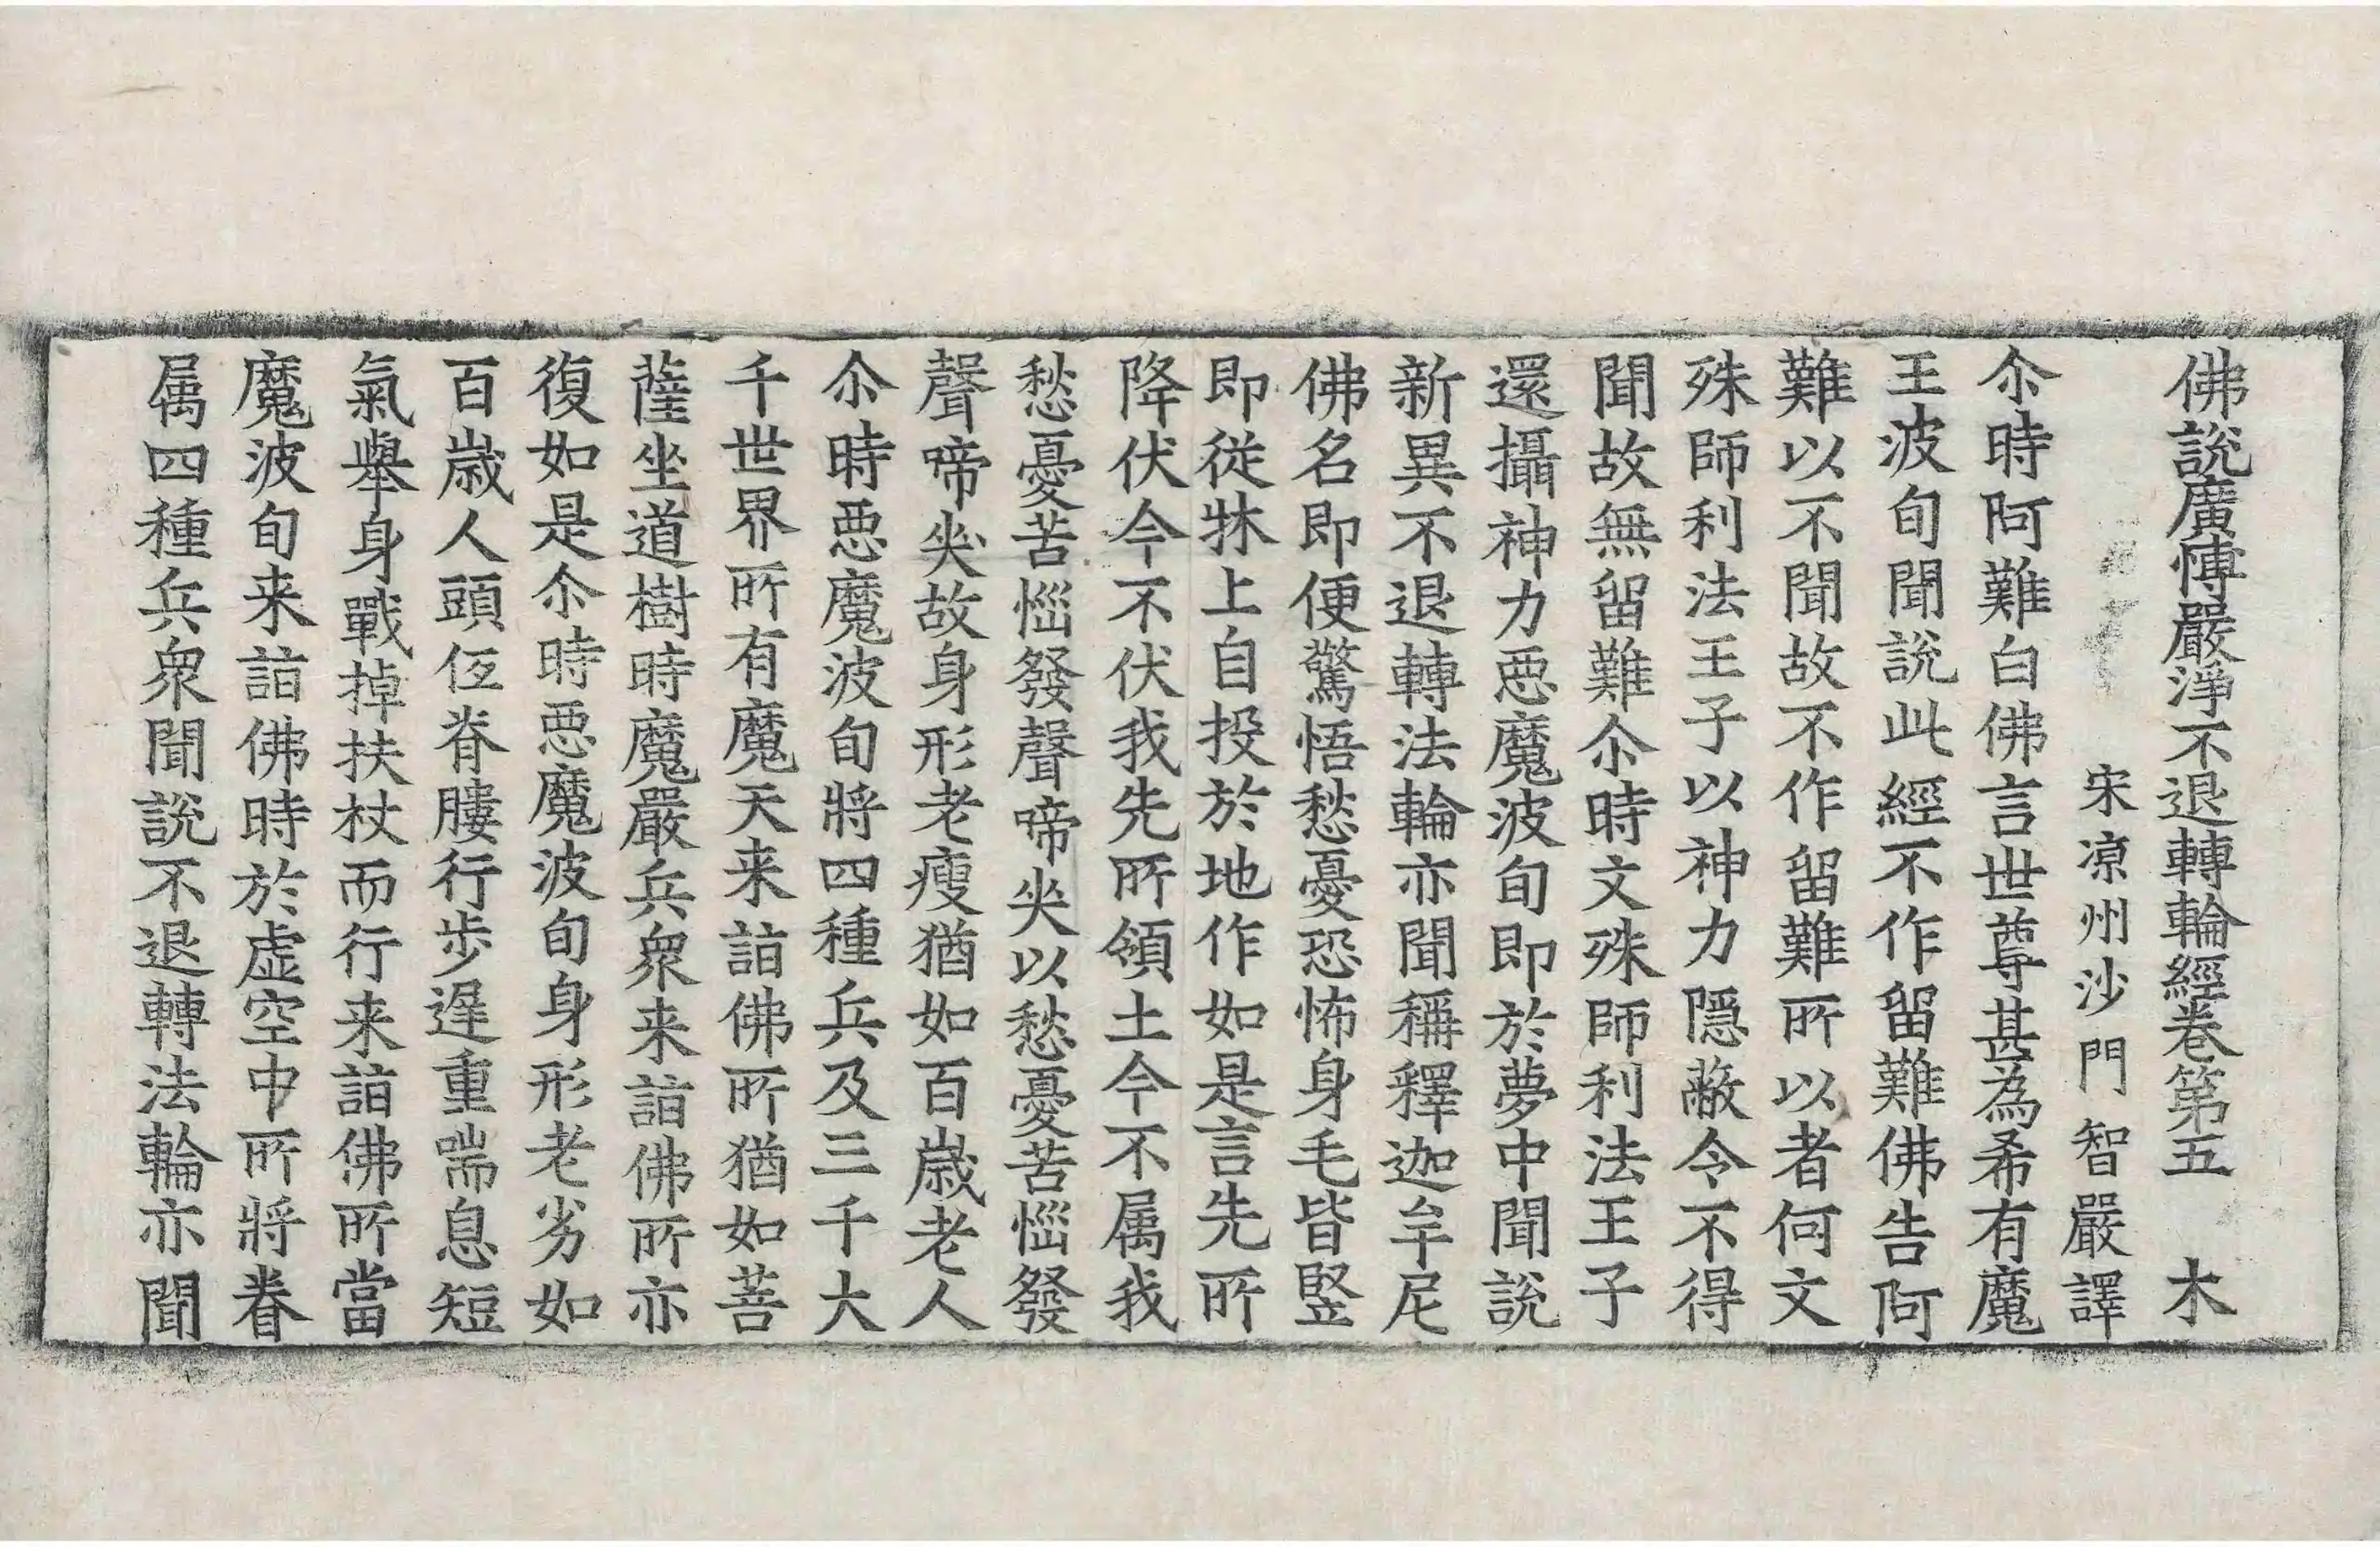 佛說廣愽嚴淨不退轉輪經卷第五　木
宋涼州沙門智嚴譯
尒時阿難白佛言世尊甚為希有魔
王波旬聞說此經不作留難佛告阿
難以不聞故不作留難所以者何文
殊師利法王子以神力隱蔽令不得
聞故無留難尒時文殊師利法王子
還攝神力惡魔波旬即於夢中聞說
新異不退轉法輪亦聞稱釋迦牟尼
佛名即便驚悟愁憂恐怖身毛皆竪
即從牀上自投於地作如是言先所
降伏今不伏我先所領土今不属我
愁憂苦惱發聲啼哭以愁憂苦惱發
聲啼哭故身形老瘦猶如百歲老人
尒時惡魔波旬將四種兵及三千大
千世界所有魔天来詣佛所猶如菩
薩坐道樹時魔嚴兵衆来詣佛所亦
復如是尒時惡魔波旬身形老劣如
百歲人頭低脊膢行步遅重喘息短
氣舉身戰掉扶杖而行来詣佛所當
魔波旬来詣佛時於虛空中所將眷
属四種兵衆聞說不退轉法輪亦聞